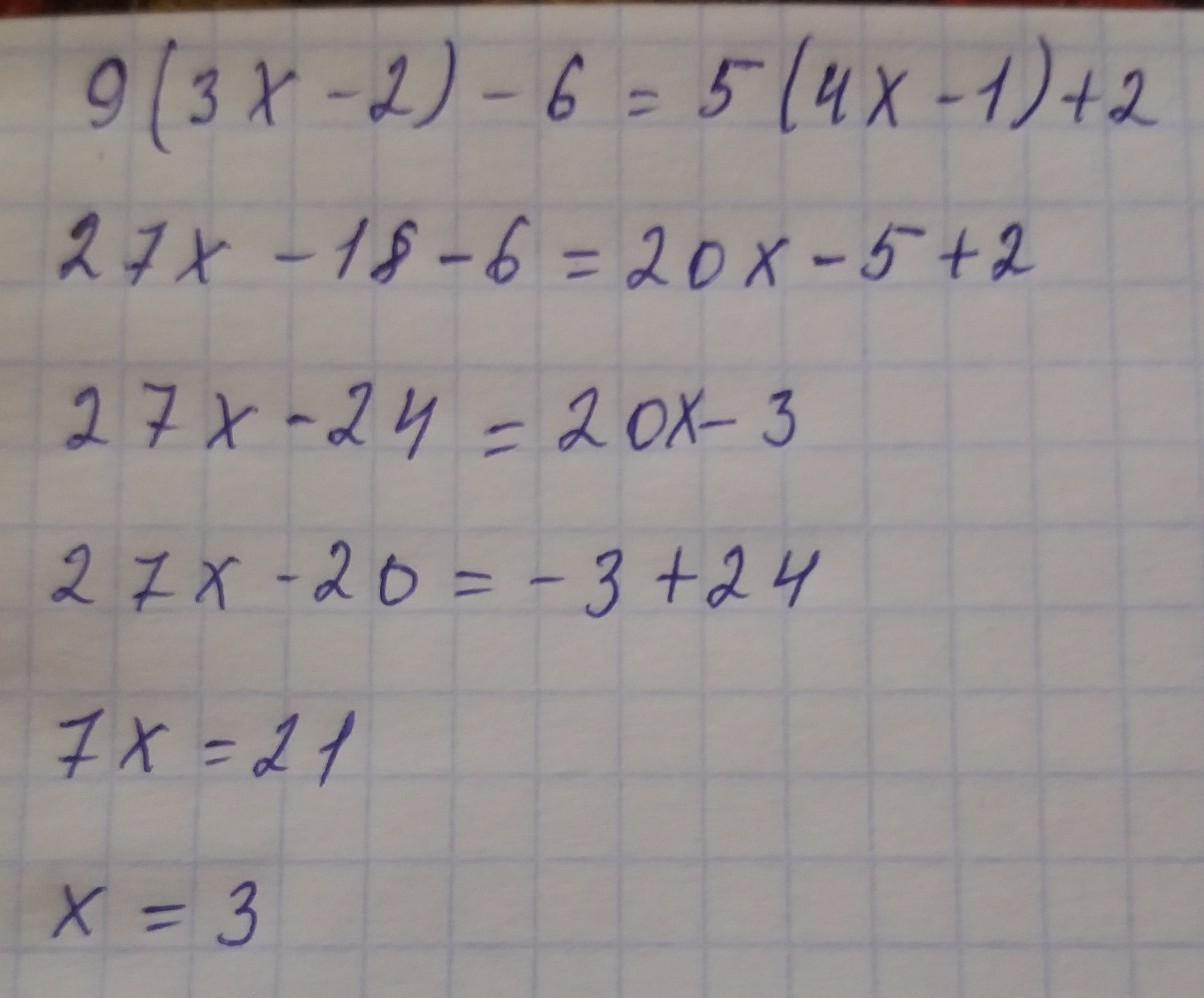 9(3x-2)-6=5(4x-1)+2
27x-18-6=20x-5+2
27x-24=20x-3
27x-20=-3+24
7x=21
x=3